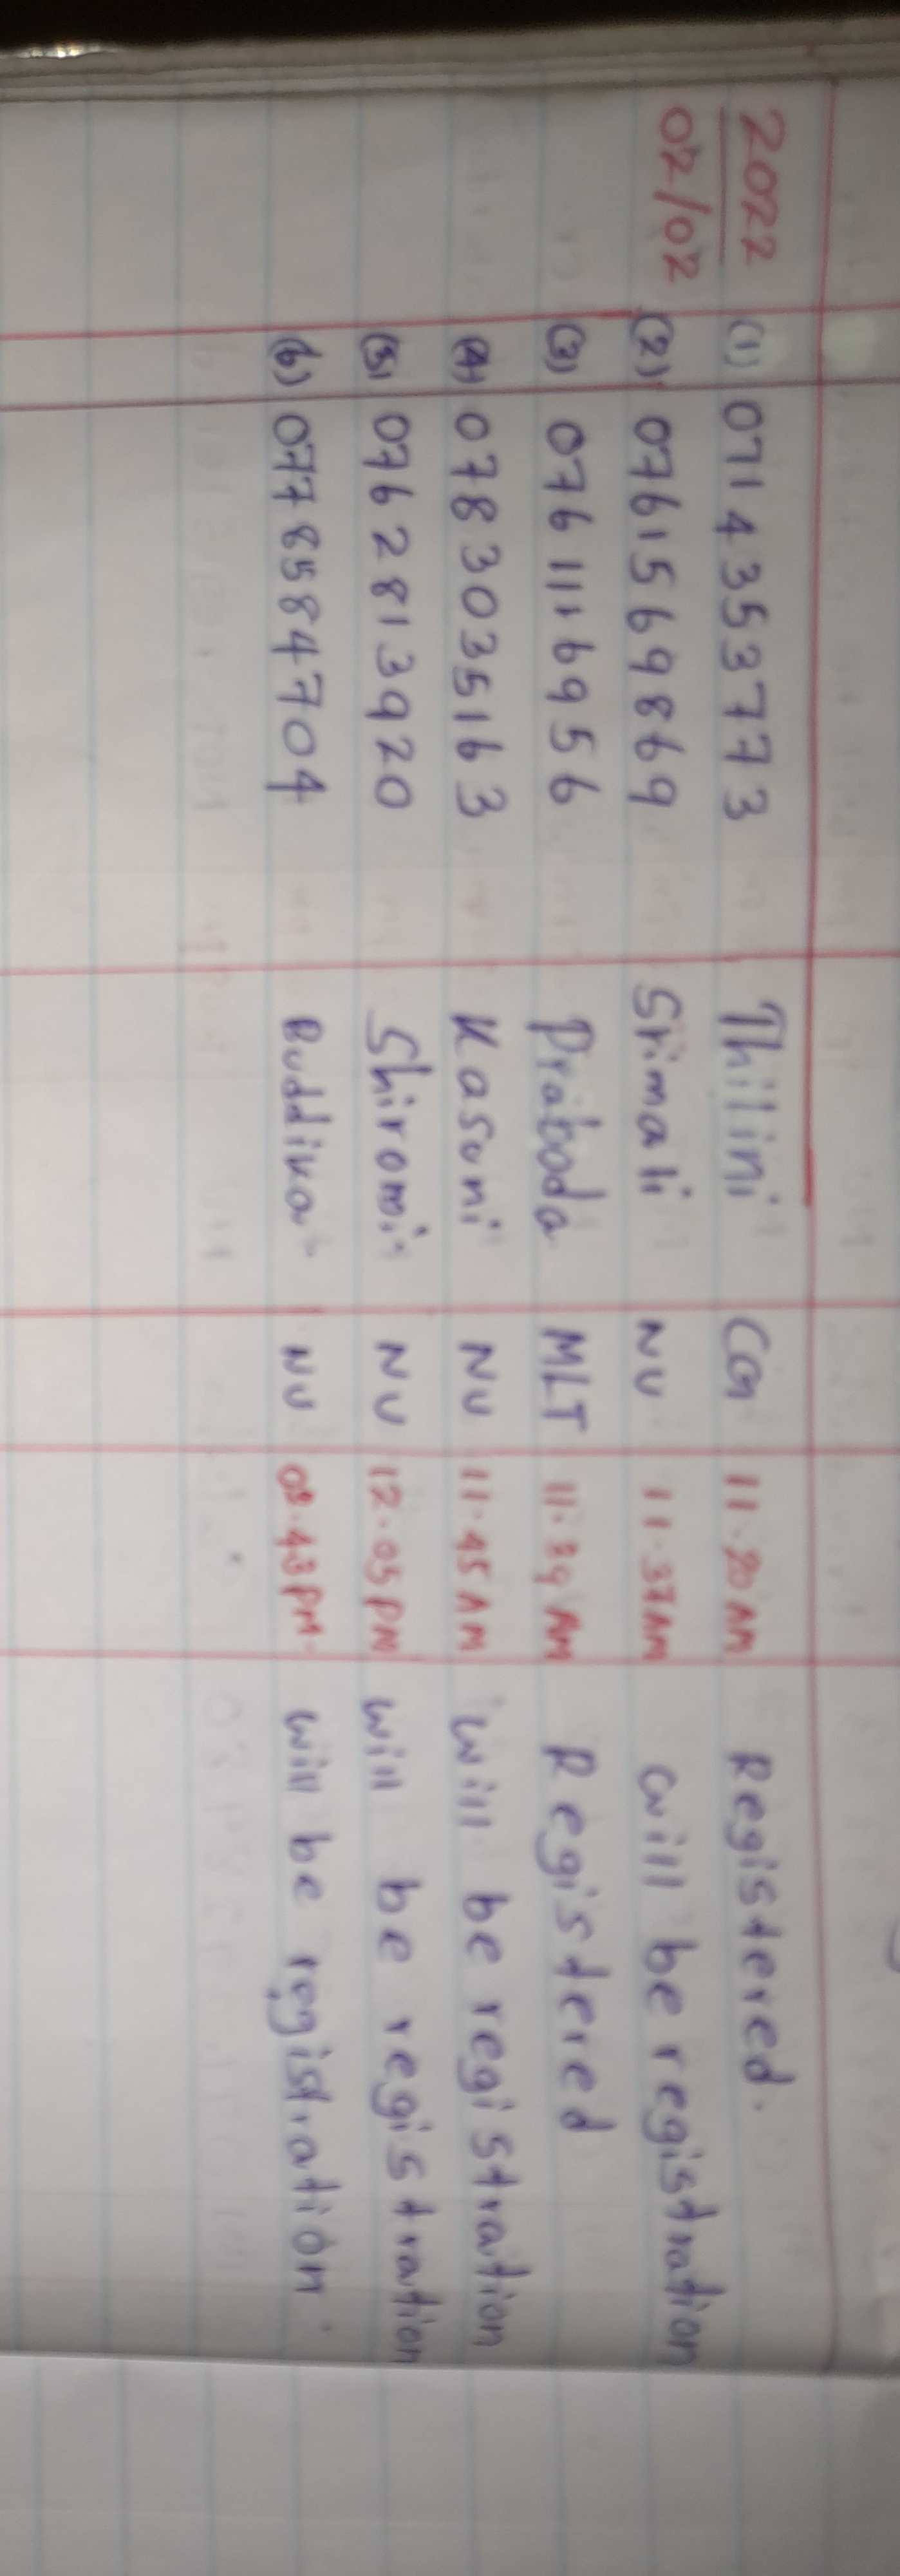 2022 (1) 0714353773 Thilini CG 11.20 AM Registered.
02/02 (2) 0761569869 Srimali NU 11.37 AM will be registration
(3) 0761116956 Praboda MLT 11.39 AM Registered
(4) 0783035163 Kasuni NU 11.45 AM will be registration
(5) 0762813920 Shiromi NU 12.05 PM will be registration
(6) 0778584704 Buddika NU 03.43 PM. will be registration